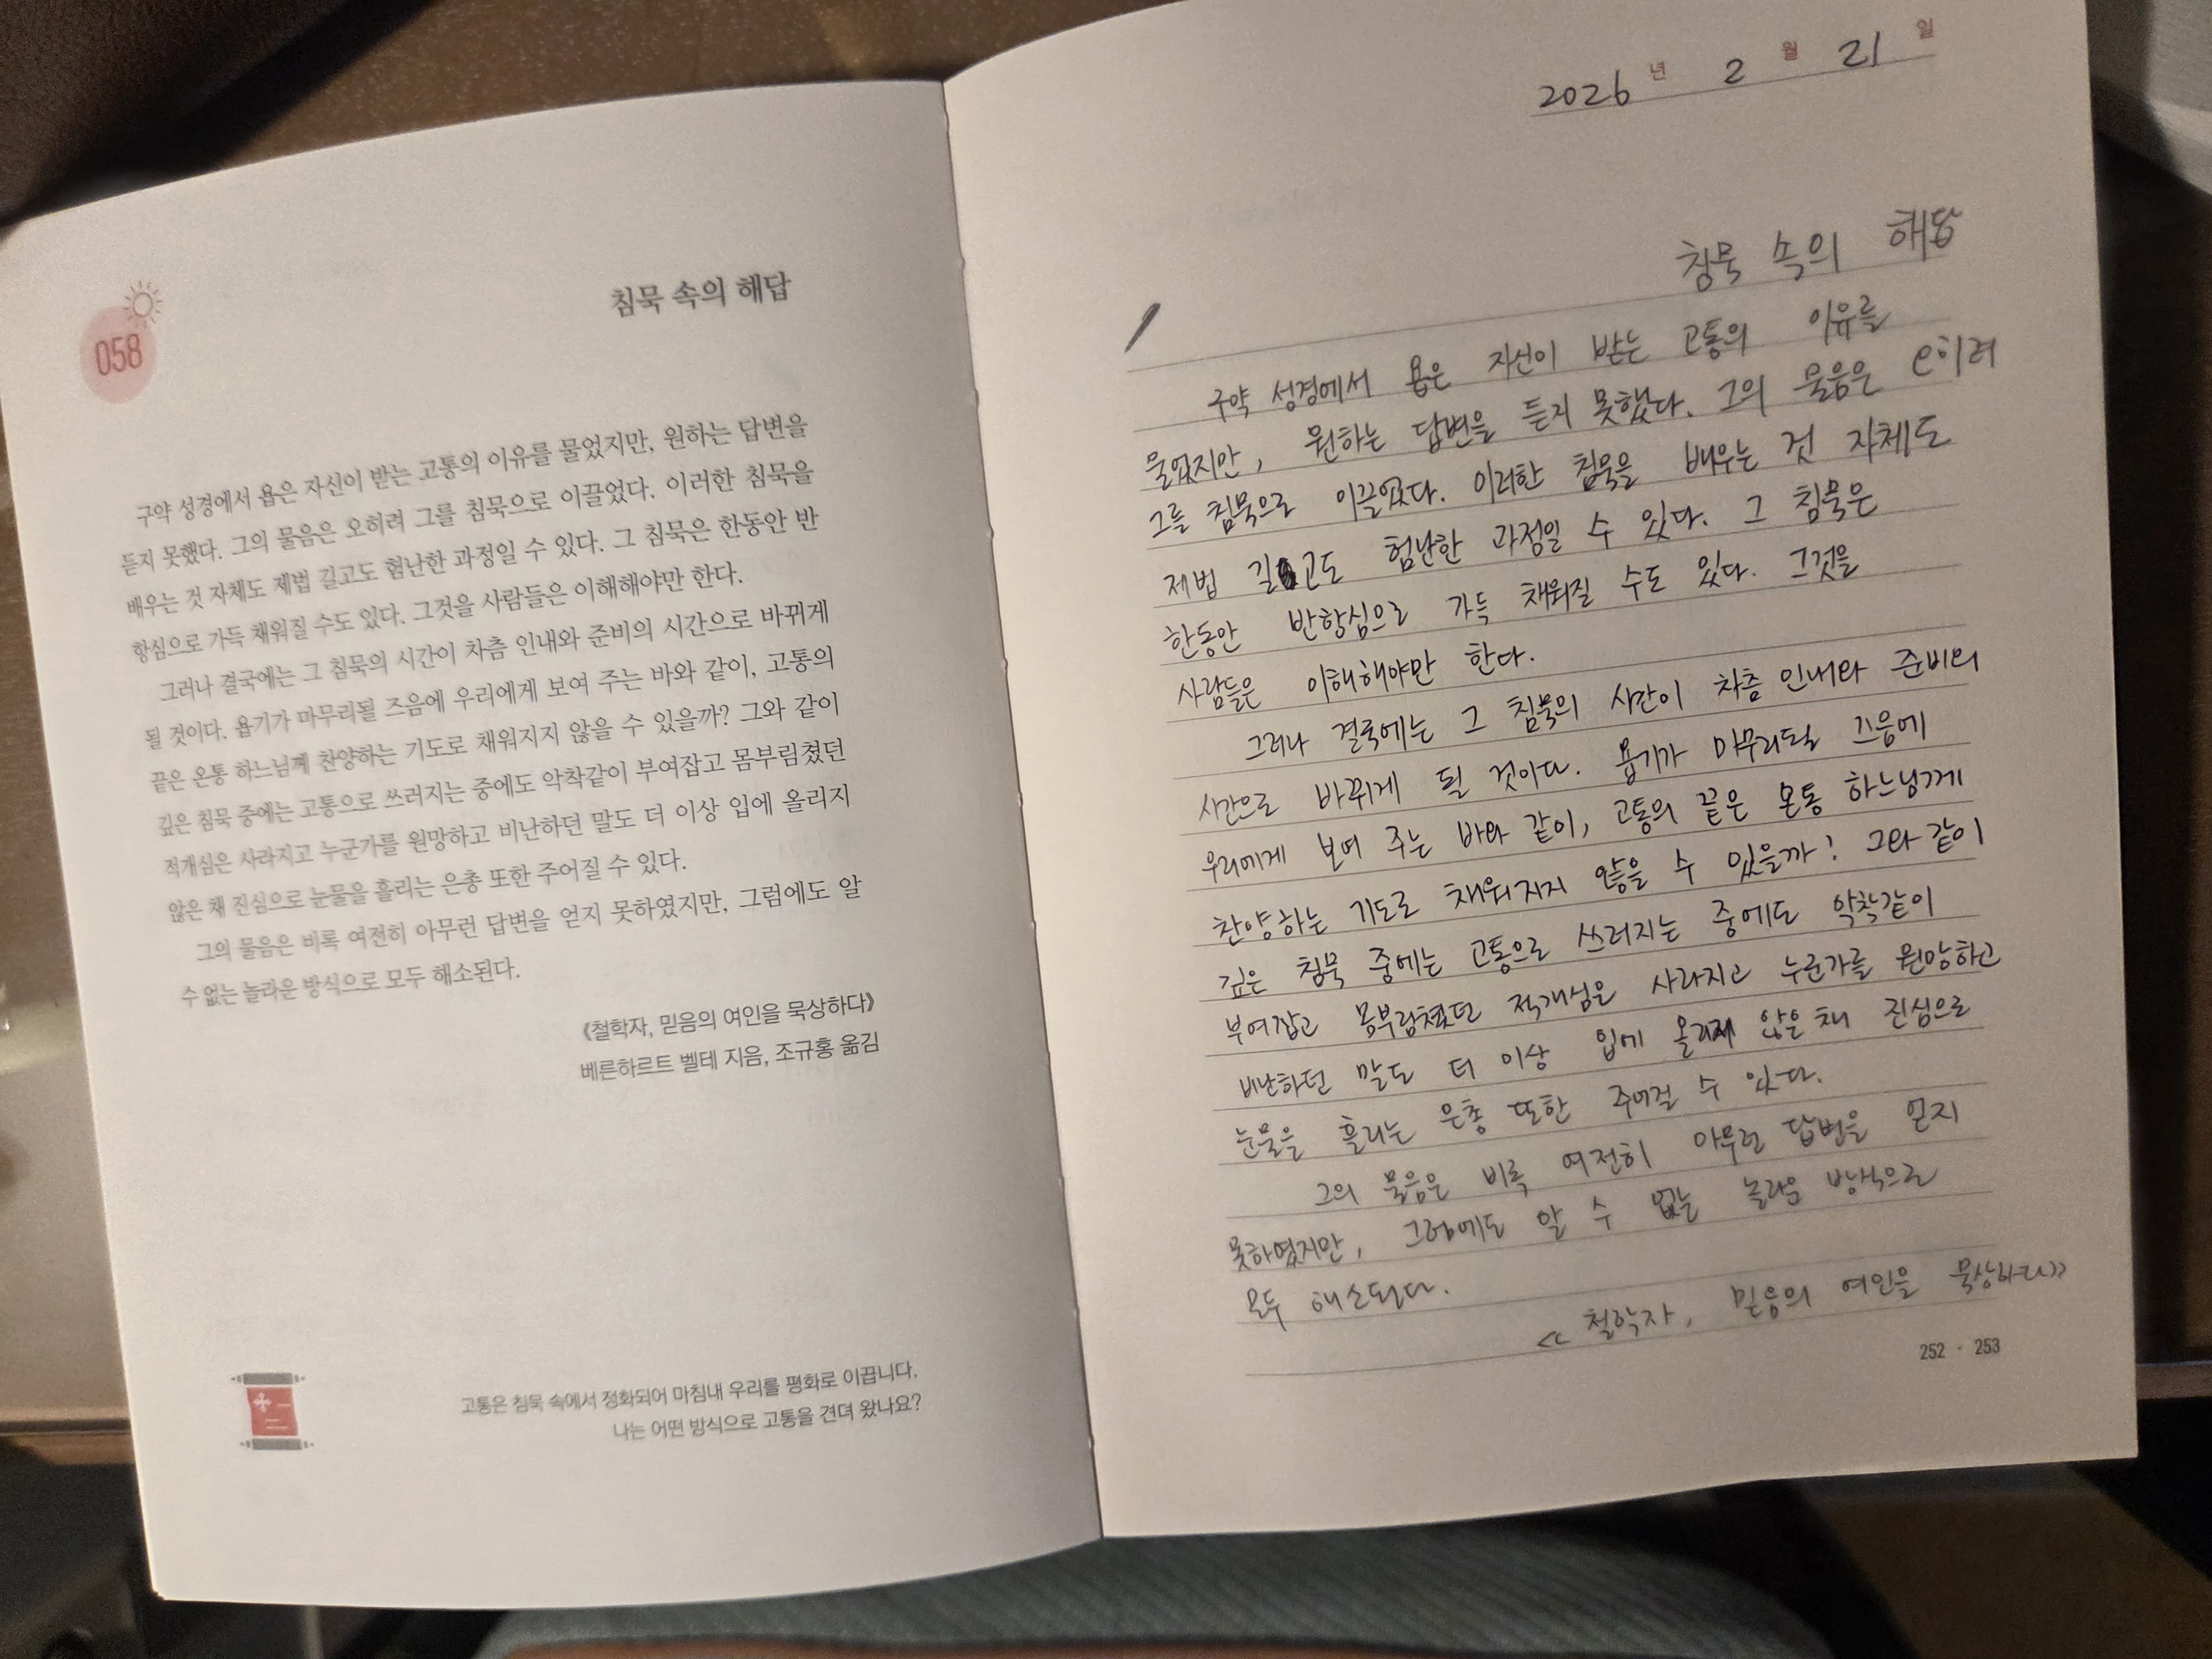 058
침묵 속의 해답
구약 성경에서 욥은 자신이 받는 고통의 이유를 물었지만, 원하는 답변을
듣지 못했다. 그의 물음은 오히려 그를 침묵으로 이끌었다. 이러한 침묵을
배우는 것 자체도 제법 길고도 험난한 과정일 수 있다. 그 침묵은 한동안 반
항심으로 가득 채워질 수도 있다. 그것을 사람들은 이해해야만 한다.
그러나 결국에는 그 침묵의 시간이 차츰 인내와 준비의 시간으로 바뀌게
될 것이다. 욥기가 마무리될 즈음에 우리에게 보여 주는 바와 같이, 고통의
끝은 온통 하느님께 찬양하는 기도로 채워지지 않을 수 있을까? 그와 같이
깊은 침묵 중에는 고통으로 쓰러지는 중에도 악착같이 부여잡고 몸부림쳤던
적개심은 사라지고 누군가를 원망하고 비난하던 말도 더 이상 입에 올리지
않은 채 진심으로 눈물을 흘리는 은총 또한 주어질 수 있다.
그의 물음은 비록 여전히 아무런 답변을 얻지 못하였지만, 그럼에도 알
수 없는 놀라운 방식으로 모두 해소된다.
《철학자, 믿음의 여인을 묵상하다》
베른하르트 벨테 지음, 조규홍 옮김
고통은 침묵 속에서 정화되어 마침내 우리를 평화로 이끕니다.
나는 어떤 방식으로 고통을 견뎌 왔나요?
2026 년 2 월 21 일
침묵 속의 해답
구약 성경에서 욥은 자신이 받는 고통의 이유를
물었지만, 원하는 답변을 듣지 못했다. 그의 물음은 오히려
그를 침묵으로 이끌었다. 이러한 침묵을 배우는 것 자체도
제법 길고도 험난한 과정일 수 있다. 그 침묵은
한동안 반항심으로 가득 채워질 수도 있다. 그것을
사람들은 이해해야만 한다.
그러나 결국에는 그 침묵의 시간이 차츰 인내와 준비의
시간으로 바뀌게 될 것이다. 욥기가 마무리될 즈음에
우리에게 보여 주는 바와 같이, 고통의 끝은 온통 하느님께
찬양하는 기도로 채워지지 않을 수 있을까! 그와 같이
깊은 침묵 중에는 고통으로 쓰러지는 중에도 악착같이
부여잡고 몸부림쳤던 적개심은 사라지고 누군가를 원망하고
비난하던 말도 더 이상 입에 올리지 않은 채 진심으로
눈물을 흘리는 은총 또한 주어질 수 있다.
그의 물음은 비록 여전히 아무런 답변을 얻지
못하였지만, 그럼에도 알 수 없는 놀라운 방식으로
모두 해소된다.
<<철학자, 믿음의 여인을 묵상하다>>
252 · 253